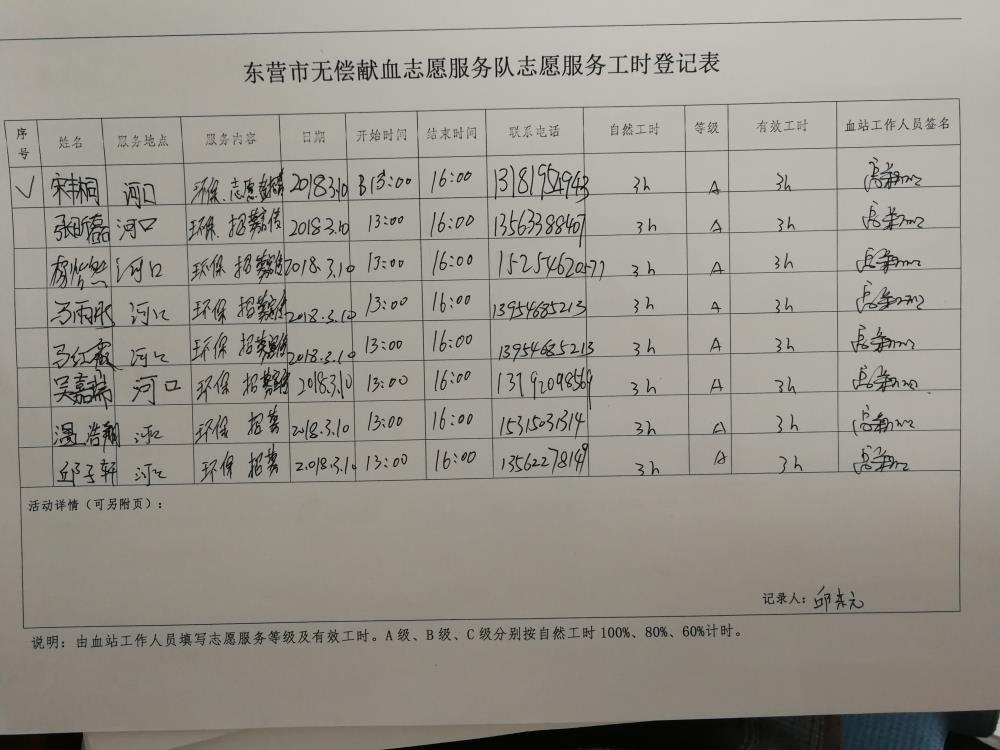 东营市无偿献血志愿服务队志愿服务工时登记表
序号 姓名 服务地点 服务内容 日期 开始时间 结束时间 联系电话 自然工时 等级 有效工时 血站工作人员签名
√ 河口 环保、志愿 2018.3.10 13:00 16:00 13181954943 3h A 3h
河口 环保 招募 2018.3.10 13:00 16:00 13563388407 3h A 3h
河口 环保 招募 2018.3.10 13:00 16:00 15254620577 3h A 3h
马雨彤 河口 环保 招募 2018.3.10 13:00 16:00 13954685213 3h A 3h
马红霞 河口 环保 招募 2018.3.10 13:00 16:00 13954685213 3h A 3h
吴嘉瑞 河口 环保 招募 2018.3.10 13:00 16:00 13792098569 3h A 3h
浩翔 河口 环保 招募 2018.3.10 13:00 16:00 15315031314 3h A 3h
邱子轩 河口 环保 招募 2018.3.10 13:00 16:00 13562278149 3h A 3h
活动详情（可另附页）：
记录人：邱
说明：由血站工作人员填写志愿服务等级及有效工时。A级、B级、C级分别按自然工时100%、80%、60%计时。